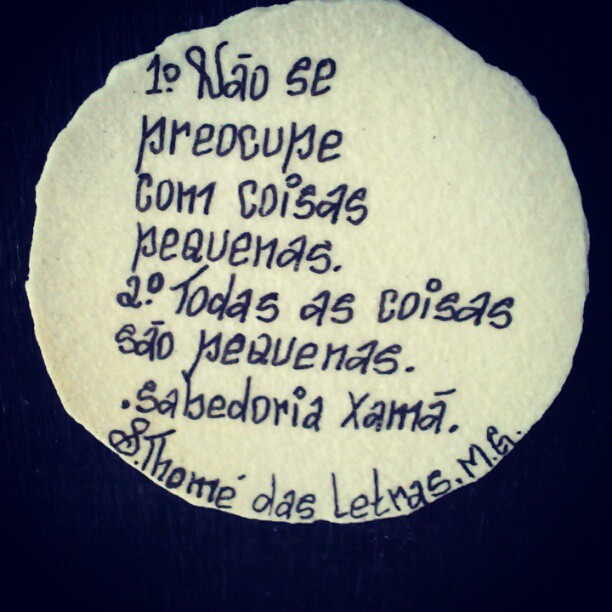 1º Não se
preocupe
com coisas
pequenas.
2º Todas as coisas
são pequenas.
.sabedoria xamã.
S.Thomé das Letras.M.G.